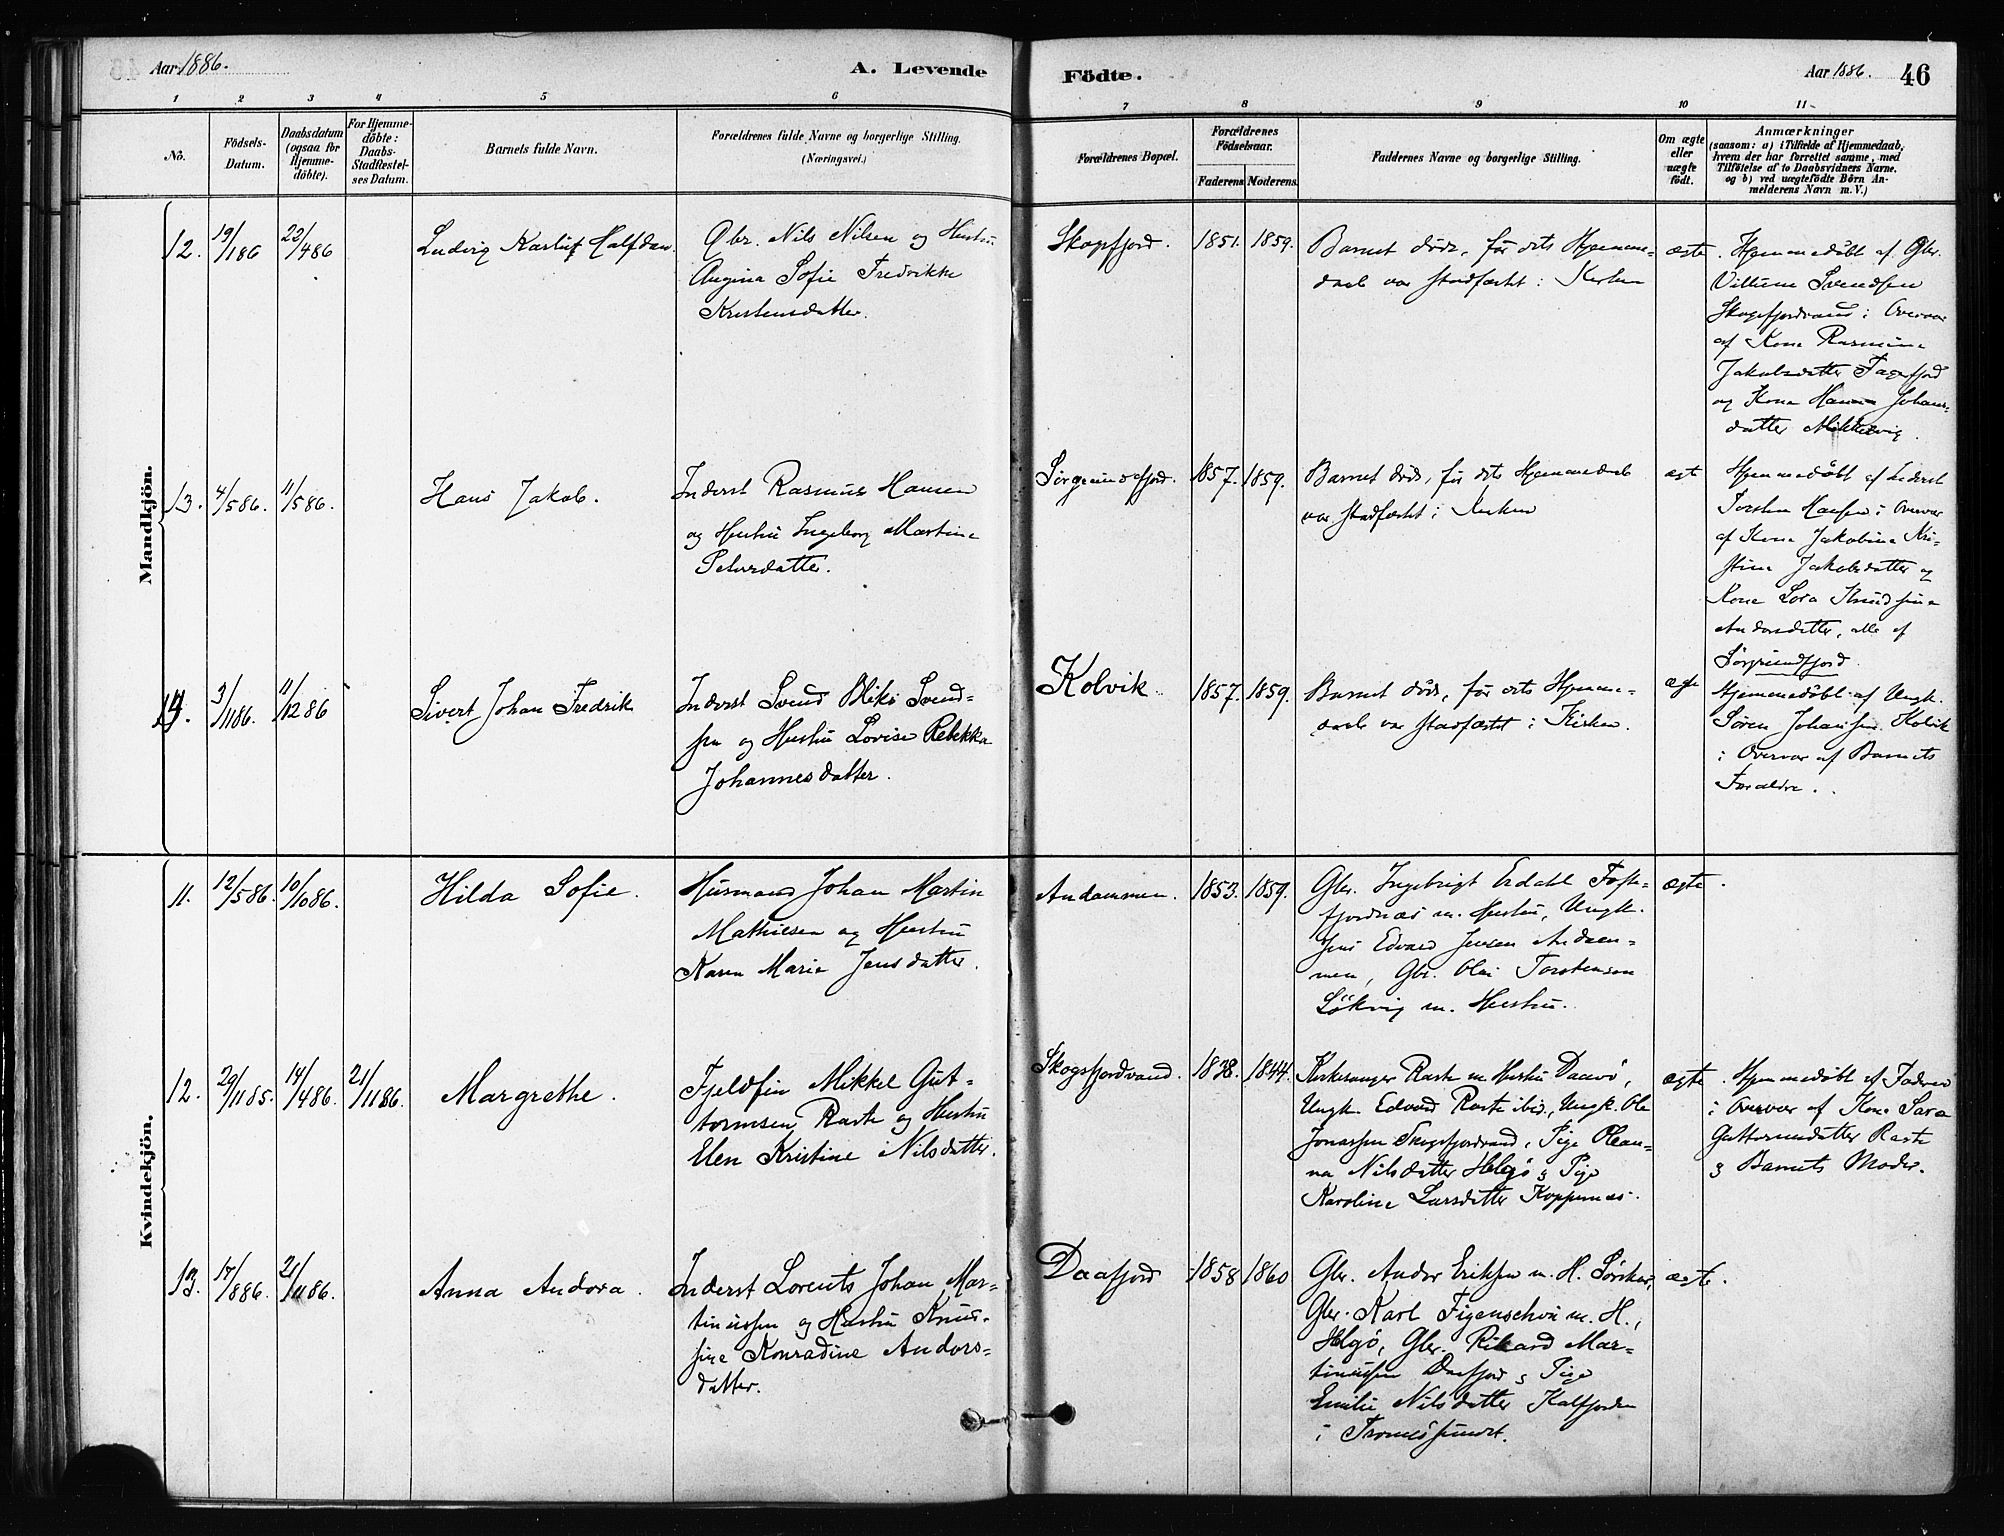 Aar 1886.
A. Levende
Födte.
Aar 1886.
46
1 2 3 4 5 6 7 8 9 10 11
No.
Födsels-
Datum.
Daabsdatum
(ogsaa for
Hjemme-
döbte).
For Hjemme-
döbte:
Daabs-
Stadfæstel-
ses Datum.
Barnets fulde Navn.
Forældrenes fulde Navne og borgerlige Stilling.
(Næringsvei.)
Forældrenes Bopæl.
Forældrenes
Födselsaar.
Faderens Moderens.
Faddernes Navne og borgerlige Stilling.
Om ægte
eller
uægte
födt.
Anmærkninger
(saasom: a) i Tilfælde af Hjemmedaab,
hvem der har forrettet samme, med
Tilföielse af to Daabsvidners Navne.
og b) ved uægtefödte Börn An-
melderens Navn m. V.)
Mandkjön.
12.
19/186
22/486
Ludvig Karluf Halfdan.
Gbr. Nils Nilsen og Hustru
Angina Sofie Fredrikke
Kristensdatter.
Skogsfjord.
1851.
1859.
Barnet døde, før dets Hjemme-
daab var stadfæstet i Kirken
ægte
Hjemmedøbt af Gbr.
Villum Svendsen
Skogsfjordvand i Overvær
af Kone Rasmine
Jakobsdatter Fagerfjord
og Kone Hanna Johans-
datter Mikkelvig.
13.
4/586.
11/586.
Hans Jakob.
Inderst Rasmus Hansen
og Hustru Ingeborg Martine
Petersdatter.
Sørgrundfjord.
1857.
1859.
Barnet døde, før dets Hjemmedaab
var stadfæstet i Kirken
ægte
Hjemmedøbt af Inderst
Torsten Hansen i Overvær
af Kone Jakobine Kri-
stine Jakobsdatter og
Kone Sora Knudsine
Andersdatter, alle af
Sørgrundfjord.
14.
3/1186.
11/1286
Sivert Johan Fredrik
Inderst Svend Bliks Svend-
sen og Hustru Lovise Rebekka
Johannesdatter.
Kolvik.
1857.
1859.
Barnet døde, før dets Hjemme-
daab var stadfæstet i Kirken.
ægte
Hjemmedøbt af Ungk.
Søren Johansen Kolvik
i Overvær af Barnets
Forældre.
Kvindekjön.
11.
12/586.
10/1086.
Hilda Sofie.
Husmand Johan Martin
Mathiesen og Hustru
Karen Marie Jensdatter.
Andammen.
1853.
1859.
Gbr. Ingebrigt Erdahl
fjordnæs m. Hustru, Ungk.
Jens Edvard Jensen Andam-
men, Gbr. Olai Torstensen
Løkvig m. Hustru.
ægte.
12.
29/1185.
14/486.
21/1186.
Margrethe.
Fjeldfin Mikkel Gut-
tormsen Raste og Hustru
Elen Kristine Nilsdatter.
Skogsfjordvand.
1838.
1844.
Kirkesanger Raste m Hustru Daavø,
Ungk. Edvard Raste ibid., Ungk. Ole
Jonassen Skogsfjordvand, Pige Olean-
na Nilsdatter Helgø & Pige
Karoline Larsdatter Koppernæs.
ægte.
Hjemmedøbt af Faderen
i Overvær af Kone Sara
Guttormsdatter Raste
& Barnets Moder.
13.
17/886.
21/1186.
Anna Andora.
Inderst Lorents Johan Mar-
tinussen og Hustru Knud-
sine Konradine Anders-
datter.
Daafjord
1858
1860
Gbr. Andor Eriksen m. H. Sørskar,
Gbr. Karl Figenschou m. H.,
Helgø, Gbr. Rikard Mar-
tinussen Daafjord & Pige
Emilie Nilsdatter Kalfjorden
i Tromsøsundet.
ægte.